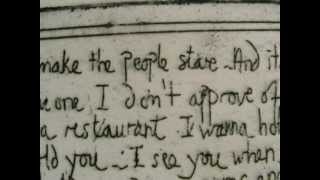 make the people stare. And it
one I don't approve of
a restaurant I wanna ho
ld you I see you when